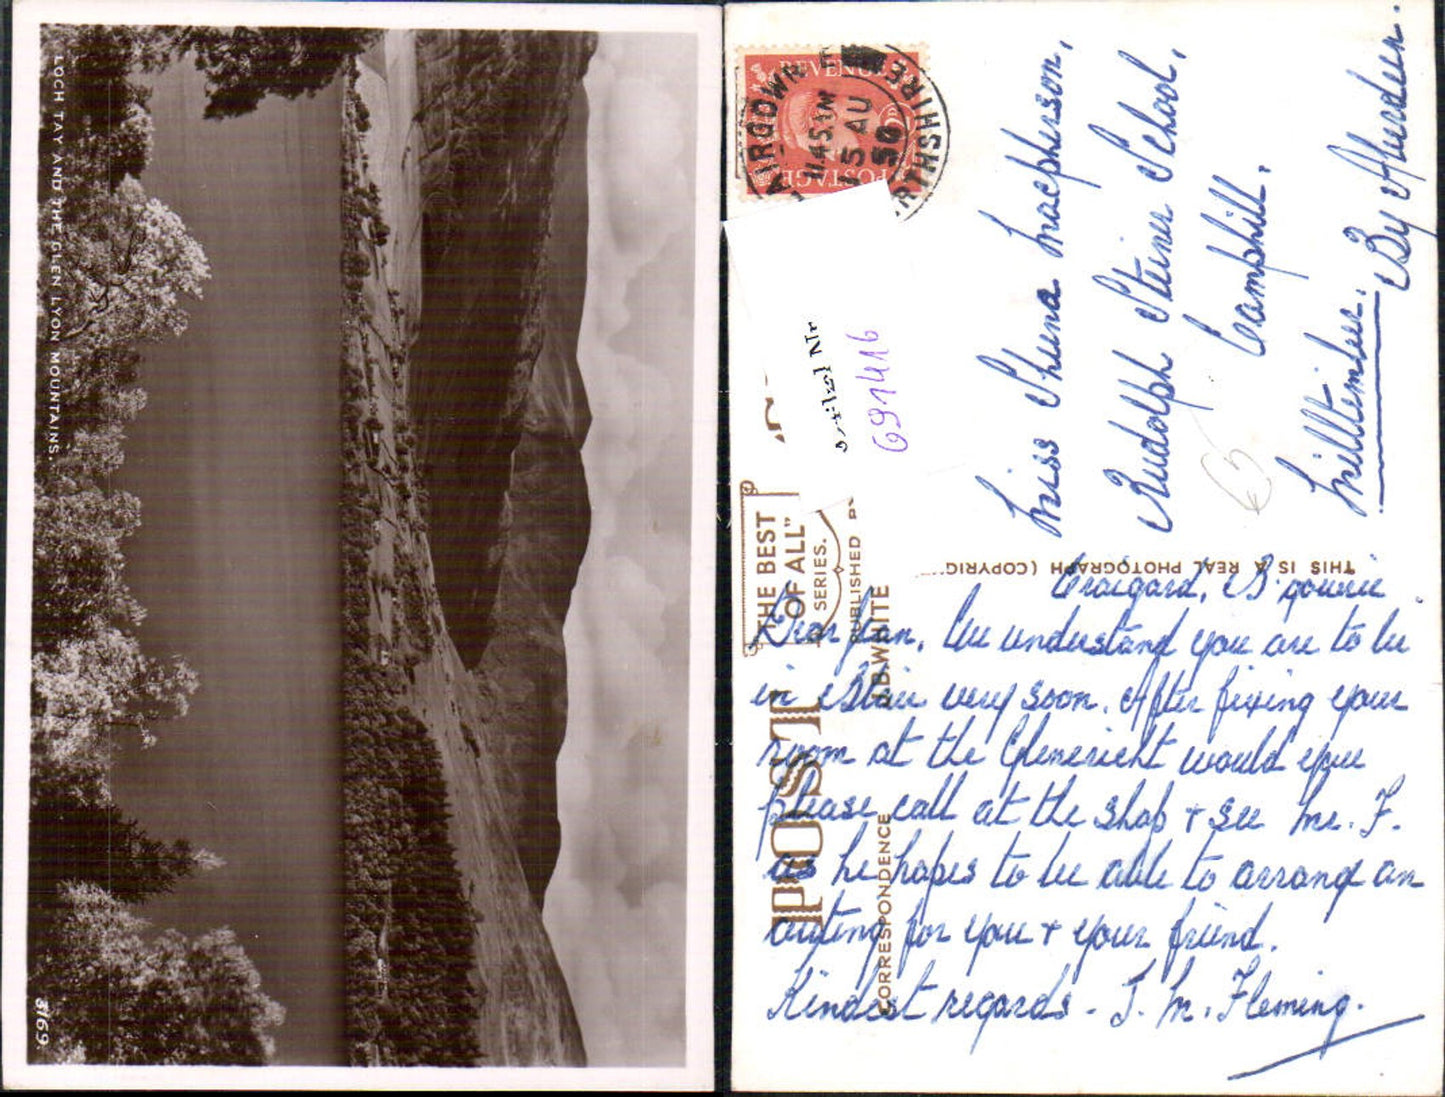 LOCH TAY AND THE GLEN LYON MOUNTAINS.
3169.
REVENUE
POSTAGE
AIRGOWR
RTHSHIRE
11.45AM
15 AU
50
691416
"THE BEST
OF ALL"
SERIES.
PUBLISHED
J.B.WHITE
POST
CORRESPONDENCE
THIS IS A REAL PHOTOGRAPH (COPYRIG
Miss Sheena Macpherson,
Rudolph Steiner School,
Camphill.
Milltimber.
By Aberdeen.
Craigard, B'gowrie
Dear Jean, We understand you are to be
in Blair very soon. After fixing your
room at the Glenericht would you
please call at the shop + see Mr. F.
as he hopes to be able to arrange an
outing for you + your friend.
Kindest regards - J. M. Fleming.